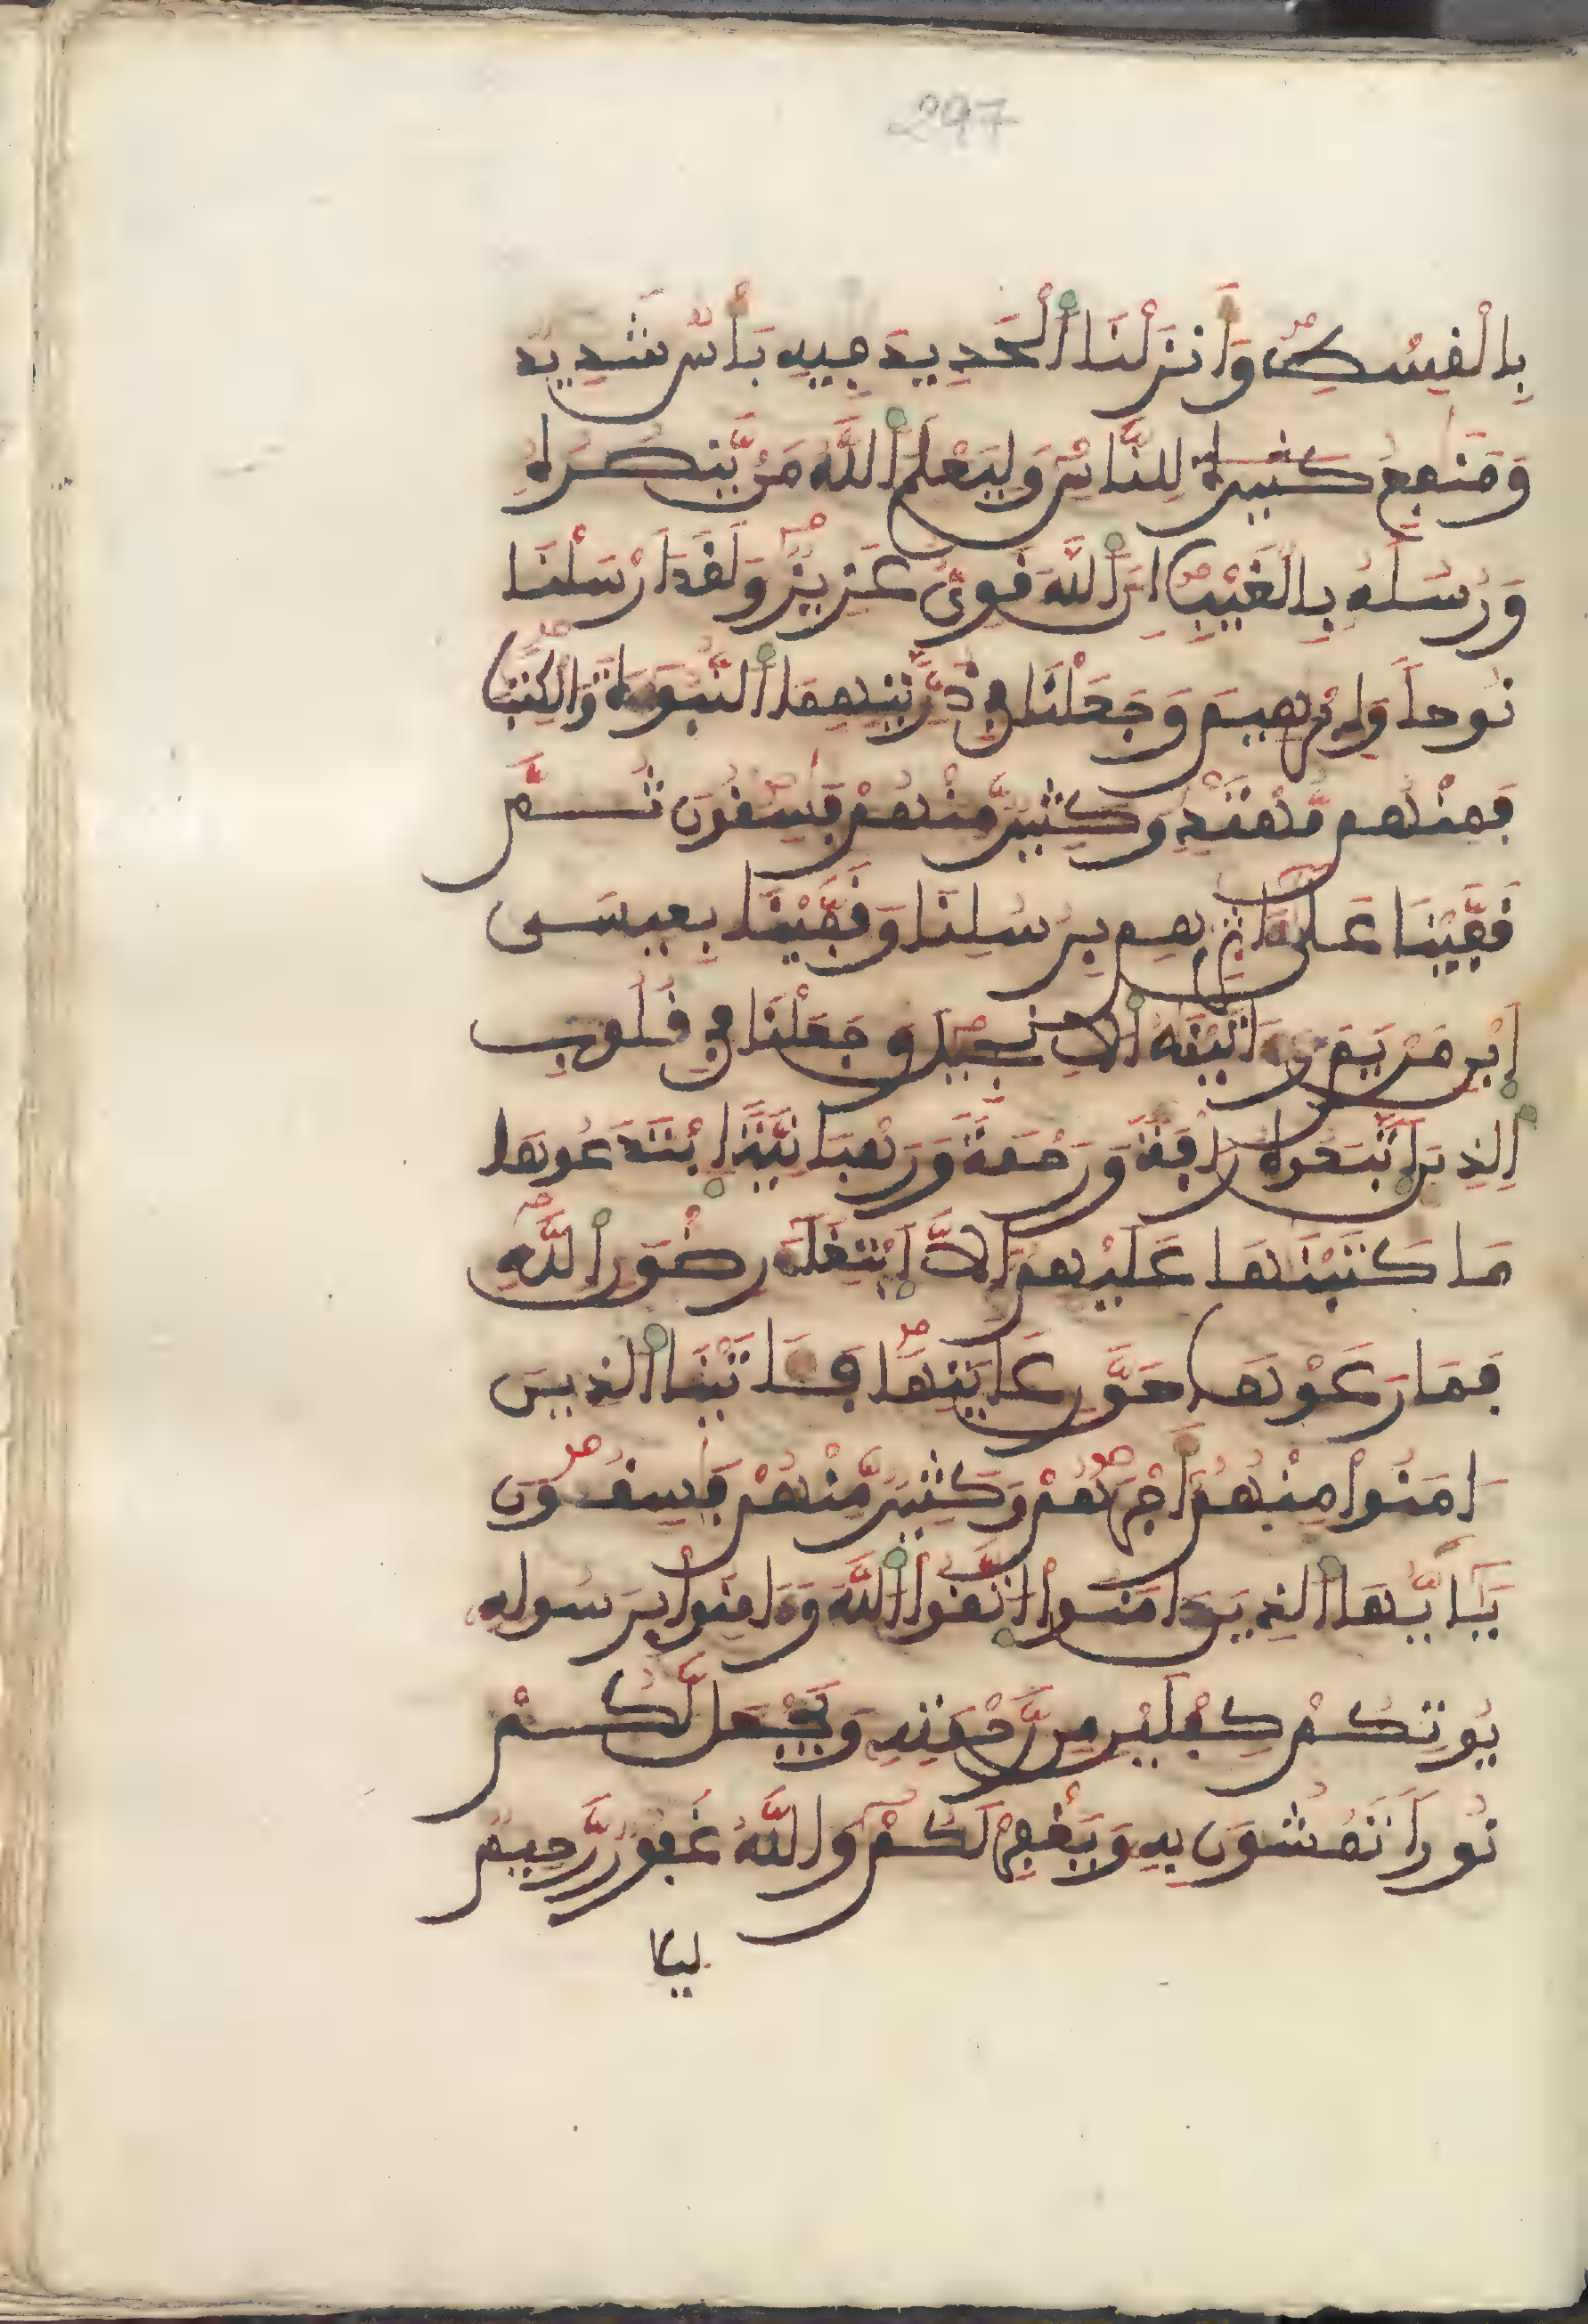 297
بِالْقِسْطِ وَأَنزَلْنَا أَلْحَدِيدَ فِيهِ بَأْسٌ شَدِيدٌ
وَمَنَٰفِعُ كَثِيرَةٌ لِلنَّاسِ وَلِيَعْلَمَ أَللَّهُ مَنْ يَّنصُرُهُ
وَرُسُلَهُ بِالْغَيْبِ إِنَّ أَللَّهَ قَوِيٌّ عَزِيزٌ وَلَقَدَ ارْسَلْنَا
نُوحاً وَإِبْرَٰهِيمَ وَجَعَلْنَا فِي ذُرِّيَّتِهِمَا أَلنُّبُوَّةَ وَالْكِتَٰبَ
فَمِنْهُم مُّهْتَدٍ وَكَثِيرٌ مِّنْهُمْ فَٰسِقُونَ ثُمَّ
قَفَّيْنَا عَلَىٰ ءَاثَٰرِهِم بِرُسُلِنَا وَقَفَّيْنَا بِعِيسَى
اَبْنِ مَرْيَمَ وَءَاتَيْنَٰهُ أُلِانجِيلَ وَجَعَلْنَا فِي قُلُوبِ
اِلذِينَ اَتَّبَعُوهُ رَأْفَةً وَرَحْمَةً وَرَهْبَانِيَّةً اِبْتَدَعُوهَا
مَا كَتَبْنَٰهَا عَلَيْهِمُ إِلَّا اَبْتِغَآءَ رِضْوَٰنِ أِللَّهِ
فَمَا رَعَوْهَا حَقَّ رِعَايَتِهَا فَـَٔاتَيْنَا أَلذِينَ
ءَامَنُوا مِنْهُمُ أَجْرَهُمْ وَكَثِيرٌ مِّنْهُمْ فَٰسِقُونَ
يَٰٓأَيُّهَا أَلذِينَ ءَامَنُوا اُتَّقُوا أَللَّهَ وَءَامِنُوا بِرَسُولِهِ
يُوتِكُمْ كِفْلَيْنِ مِن رَّحْمَتِهِ وَيَجْعَل لَّكُمْ
نُوراً تَمْشُونَ بِهِ وَيَغْفِرْ لَكُمْ وَاللَّهُ غَفُورٌ رَّحِيمٌ
ليلا